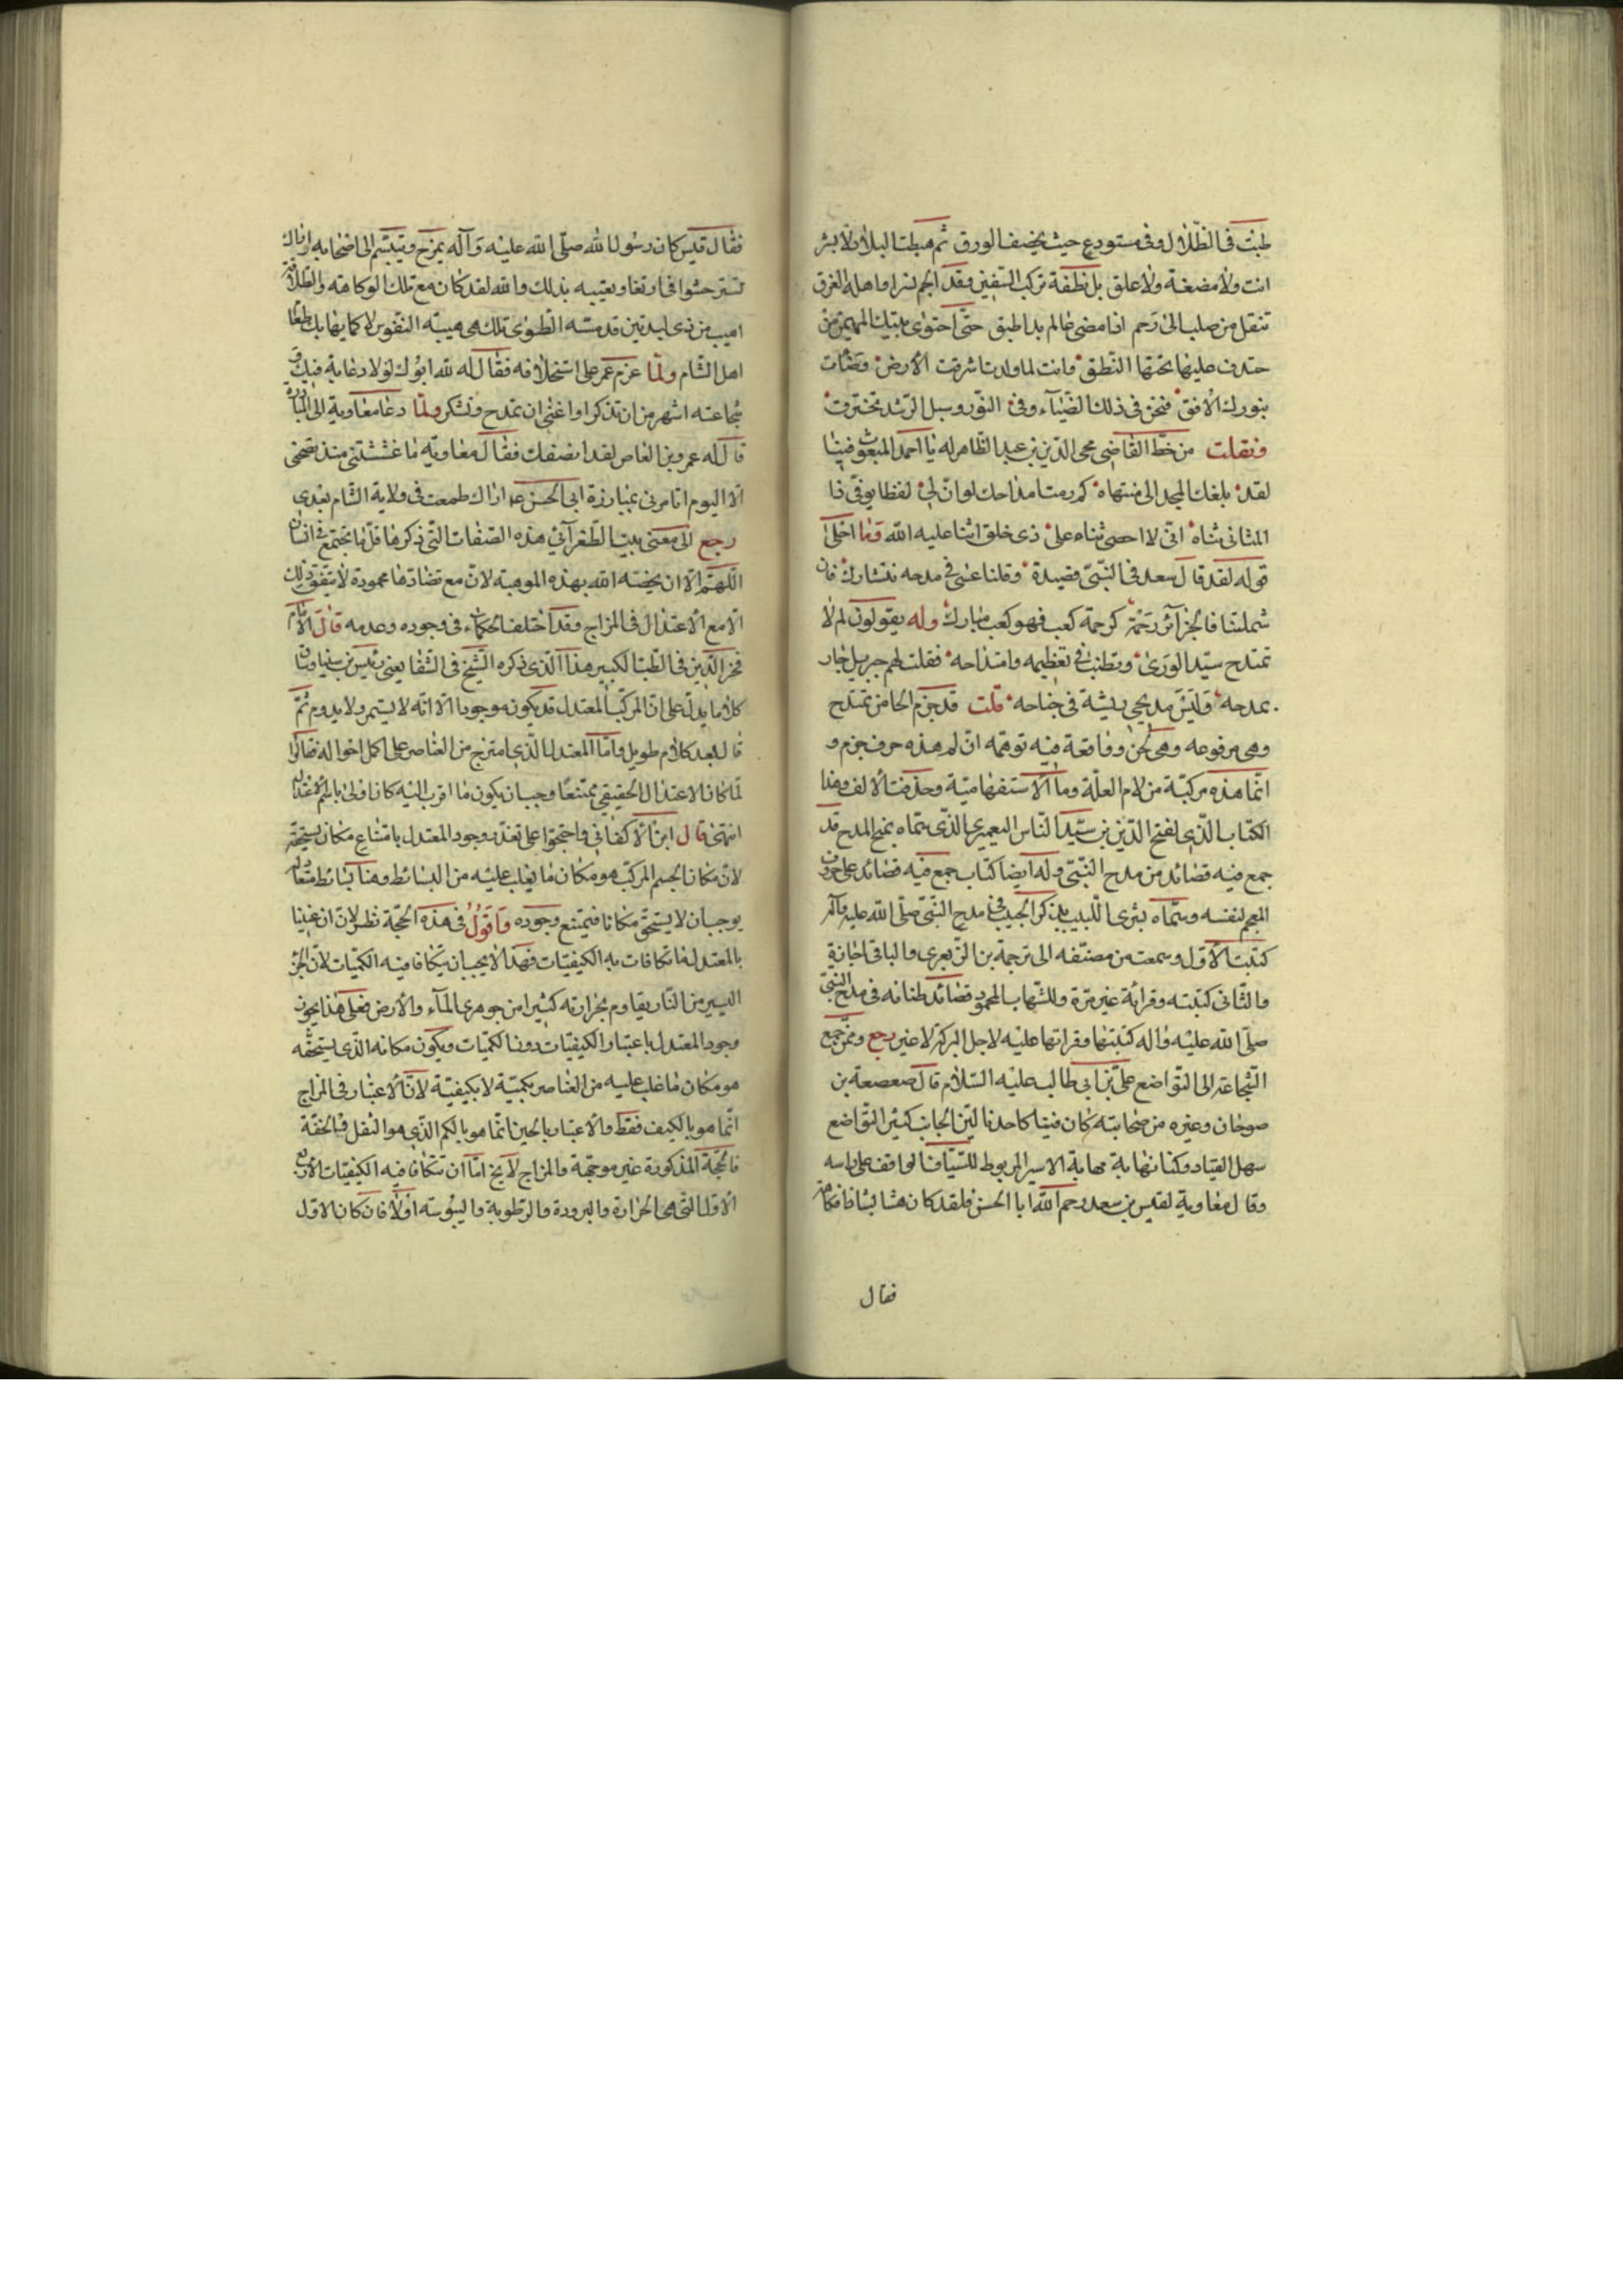 طبت فى الظلال وفى مستودع حيث يخصف الورق ثم هبطت البلاد لا بشر
انت ولا مضغة ولا علق بل نطفة تركب السفين وقد الجم نسرا واهله الغرق
تنقل من صلب الى رحم اذا مضى عالم بدا طبق حتى احتوى بيتك المهيمن من
خندف علياء تحتها النطق وانت لما ولدت اشرقت الأرض وضاءت
بنورك الافق فنحن فى ذلك الضياء وفى النور وسبل الرشد نخترق
ونقلت من خط القاضى محى الدين بن عبد الظاهر له يا احمد المبعوث فينا
لقد بلغك المجد الى منتهاه كم رمت امداحك لو ان لى لفظا يوفى ذا
المثانى ثناه انى لا احصى ثناء على ذى خلق اثنا عليه الله وما احلى
قوله لقد قال سعد فى النبى قصيدة وقلنا عسى فى مدحه نتشارك فان
شملتنا فالجزائر رحمة كرحمة كعب فهو كعب مبارك وله يقولون لم لا
تمتدح سيد الورى وتطنب فى تعظيمه وامتداحه فقلت لهم جبريل حار
بمدحه وليس مديحى ريشة فى جناحه قلت قد جزم الحا من تمتدح
وهى مرفوعه وهى لحن وواقعة فيه توهمه ان لم هذه حرف جزم و
انما هذه مركبة من لام العلة وما الاستفهامية وحذفت الالف وهذا
الكتاب الذى لفتح الدين بن سيد الناس اليعمرى الذى سماه بمنح المدح قد
جمع فيه قصائد من مدح النبى وله ايضا كتاب جمع فيه قصائد على حروف
المعجم لنفسه وسماه بشرى اللبيب بذكرى الحبيب فى مدح النبى صلى الله عليه وآله
كتبت الاول وسمعته من مصنفه الى ترجمة بن الزبعرى والباقى اجازة
والثانى كتبته وقراءة غير مرة وللشهاب المحمود قصائد طنانه فى مدح النبى
صلى الله عليه واله كتبتها وقراتها عليه لاجل البركة لا غير رجع وممن جمع
الشجاعة الى التواضع على بن ابى طالب عليه السلام قال صعصعة بن
صوحان وغيره من صحابته كان فينا كاحدنا لين الجانب كثير التواضع
سهل القياد وكنا نهابه مهابة الاسير المربوط للسياف الواقف على راسه
وقال معاوية لقيس بن سعد رحم الله ابا الحسن فلقد كان هشا بشا ذا فكاهة
فقال
فقال قيس كان رسول الله صلى الله عليه وآله يمزح ويتبسم الى اصحابه واراك
تستر حسوا فى ارتغا وتعيبه بذلك والله لقد كان مع تلك الفكاهة والطلاقة
اهيب من ذى لبدتين قد مسه الطوى تلك هى هيبة النفوس لا كما يهابك طغا
اهل الشام ولما عزم عمر على استخلافه فقال له لله ابوك لولا دعابة فيك و
شجاعته اشهر من ان تذكر او اغنى ان تمدح وتشكر ولما دعا معاوية الى المبارزة
قال له عمرو بن العاص لقد انصفك فقال معاوية ما غششتنى منذ نصحتنى
الا اليوم اتامرنى بمبارزة ابى الحسن اراك طمعت فى ولاية الشام بعدى
رجع الى معنى بيت الطغرآئى هذه الصفات التى ذكرها قل ما تجتمع فى انسان
اللهم الا ان يخصه الله بهذه الموهبة لان مع تضادها محمودة لا يتفق ذلك
الا مع الاعتدال فى المزاج وقد اختلف الحكماء فى وجوده وعدمه قال الامام
فخر الدين فى الطب الكبير هذا الذى ذكره الشيخ فى الشفا يعنى رئيس بن سينا وبان
كلاما يدل على ان المركب المعتدل قد يكون موجودا الا انه لا يستمر ولا يدوم ثم
قال بعد كلام طويل واما المعتدل الذى امتزج من العناصر على اكمل احواله فقالوا
لما كان الاعتدال الحقيقى ممتنعا وجب ان يكون ما اقرب اليه كان اولى باسم الاعتدال
انتهى قال ابن الاكفانى واحتجوا على تعذر وجود المعتدل بامتناع مكان يستحقه
لان مكان الجسم المركب هو مكان ما يغلب عليه من البسائط وهنا بسائط متعادله
يوجب ان لا يستحق مكانا فيمتنع وجوده واقول فى هذه الحجة نظر لان ان عنينا
بالمعتدل ما تكافات به الكيفيات فهذا لا يجب ان يتكافا فيه الكميات لان الجزء
اليسير من النار يقاوم بحرارته كثيرا من جوهرى الماء والارض فعلى هذا يجوز
وجود المعتدل باعتبار الكيفيات دون الكميات ويكون مكانه الذى يستحقه
هو مكان ما غلب عليه من العناصر بكمية لا بكيفية لان الاعتبار فى المزاج
انما هو بالكيف فقط والاعتبار بالحين انما هو بالكم الذى هو الثقل والخفة
فالحجة المذكورة غير موجهة والمزاج لا يخ اما ان تتكافا فيه الكيفيات الاربع
الاول التى هى الحرارة والبرودة والرطوبة واليبوسة اولا فان كان الاول